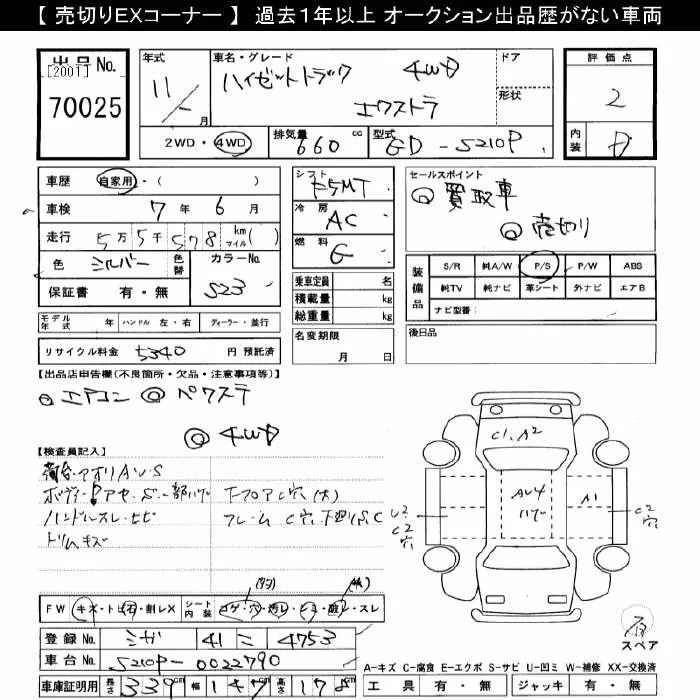 【 売切りEXコーナー 】 過去１年以上 オークション出品歴がない車両
出品No. [2001] 70025
年式 11 月
車名・グレード ハイゼットトラック 4WD エクストラ
ドア
形状
2WD・4WD 排気量 660 cc 型式 GD - S210P
評価点 2
内装 D
車歴 自家用・( )
車検 7 年 6 月
走行 5万 5千 578 km マイル ( )
色 シルバー 色替 カラーNo. S23
保証書 有・無
モデル年式 年 ハンドル 左・右 ディーラー・並行
リサイクル料金 5340 円 預託済
シフト F5MT
冷房 AC
燃料 G
乗車定員 名
積載量 kg
総重量 kg
名変期限 月 日
セールスポイント
◎ 買取車
◎ 売切り
装備品 S/R 純A/W P/S P/W ABS
純TV 純ナビ 革シート 外ナビ エアB
ナビ型番：
後日品
【出品店申告欄(不良箇所・欠品・注意事項等)】
◎ エアコン ◎ パワステ
◎ 4WD
【検査員記入】
荷台・アオリ A・U・S
ボディー アセ
ハンドルスレ・ヒビ フレーム C穴 下廻りS.C
トリムキズ
C1、A2
AU4
ハゲ
A1
C2穴
C2穴
FW キズ・トビ石・割レX シート内装 コゲ・穴・汚レ・シミ・破レ・スレ
登録No. シガ 41 ニ 4753
車台No. S210P-0022790
車庫証明用 長さ 339 幅 147 高さ 178
スペア
A-キズ C-腐食 E-エクボ S-サビ U-凹ミ W-補修 XX-交換済
工具 有・無 ジャッキ 有・無